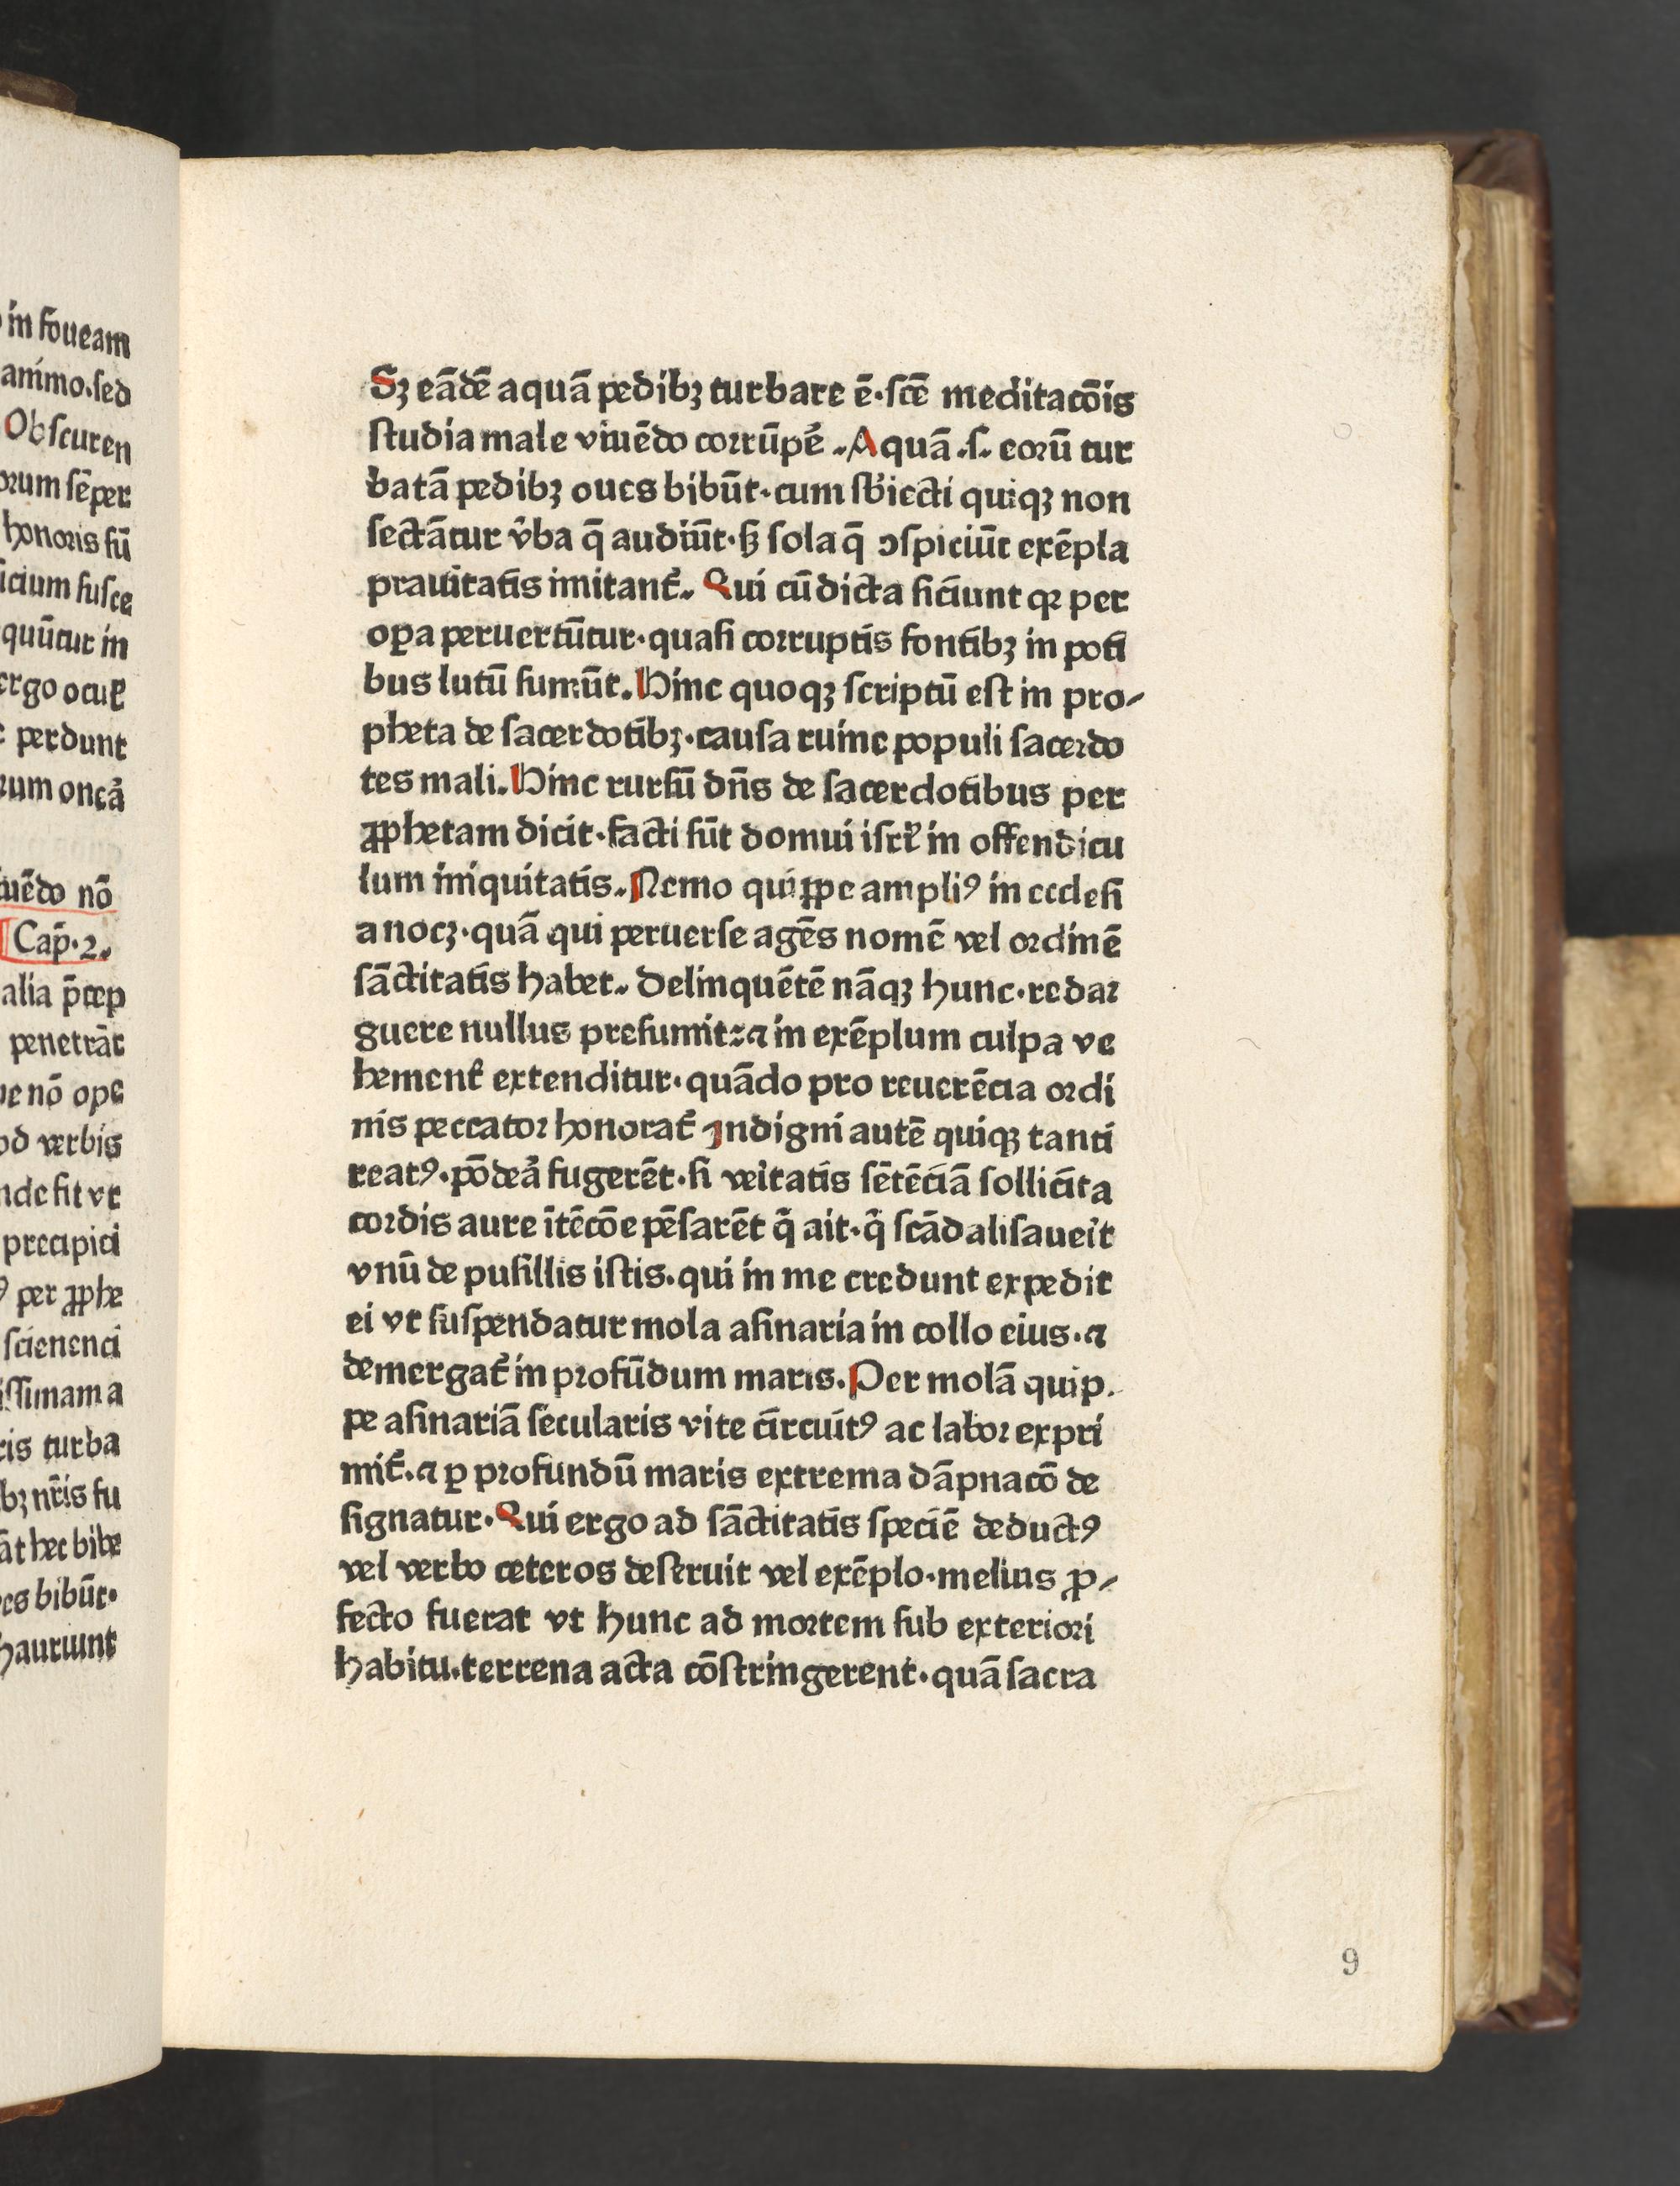 in foueam
animo.sed
Obscuren
orum sēper
honoris sū
icium susce
quūtur in
ergo oculꝭ
perdunt
rum oneã
uēdo nō
Cap̄.2.
alia p̄cep
penetrāt
nō ope
od verbis
nde fit vt
precipici
per ꝓphe
scienenci
issimam a
ris turba
bꝫ nr̄is fu
āt hec bibe
es bibūt.
hauriunt
Sꝫ eādē aquā pedibꝫ turbare ē.scē meditacōis
studia male viuēdo corrūpē̉.Aquā.s. eorū tur
batā pedibꝫ oues bibūt.cum sb̓iecti quiqꝫ non
sectātur v̓ba q̄ audiūt.sꝫ sola q̄ ↄspiciūt exēpla
prauitatis imitant̉. Qui cū dicta siciunt qꝛ per
oꝑa peruertūtur.quasi corruptis fontibꝫ in poti
bus lutū sumūt. Hinc quoqꝫ scriptū est in pro-
pheta de sacerdotibꝫ.causa ruine populi sacerdo
tes mali. Hinc rursū dn̄s de sacerdotibus per
ꝓphetam dicit.facti sūt domui isrꝉ in offendicu
lum iniquitatis. Nemo quiꝓpe ampliꝰ in ecclesi
a nocꝫ.quā qui peruerse agēs nomē vel ordinē
sāctitatis habet. Delinquētē nāqꝫ hunc.redar
guere nullus presumit:⁊ in exēplum culpa ve
hement̉ extenditur.quādo pro reuerēcia ordi
nis peccator honorat̉ Indigni autē quiqꝫ tanti
reatꝰ.pōdeā̉ fugerēt.si veītatis sētēciā sollicīta
cordis aure ītēcōe pēsarēt q̄ ait.q̄ scādalisaueīt
vnū de pusillis istis.qui in me credunt expedit
ei vt suspendatur mola asinaria in collo eius.⁊
demergat̉ in profūdum maris. Per molā quip.
pe asinariā secularis vite circuitꝰ ac labor expri
mit̉.⁊ ꝑ profundū maris extrema dāpnacō de
signatur. Qui ergo ad sāctitatis speciē deductꝰ
vel verbo ceteros deseruit vel exēplo.melius ꝓ-
fecto fuerat vt hunc ad mortem sub exteriori
habitu.terrena acta cōstringerent.quā sacra
9